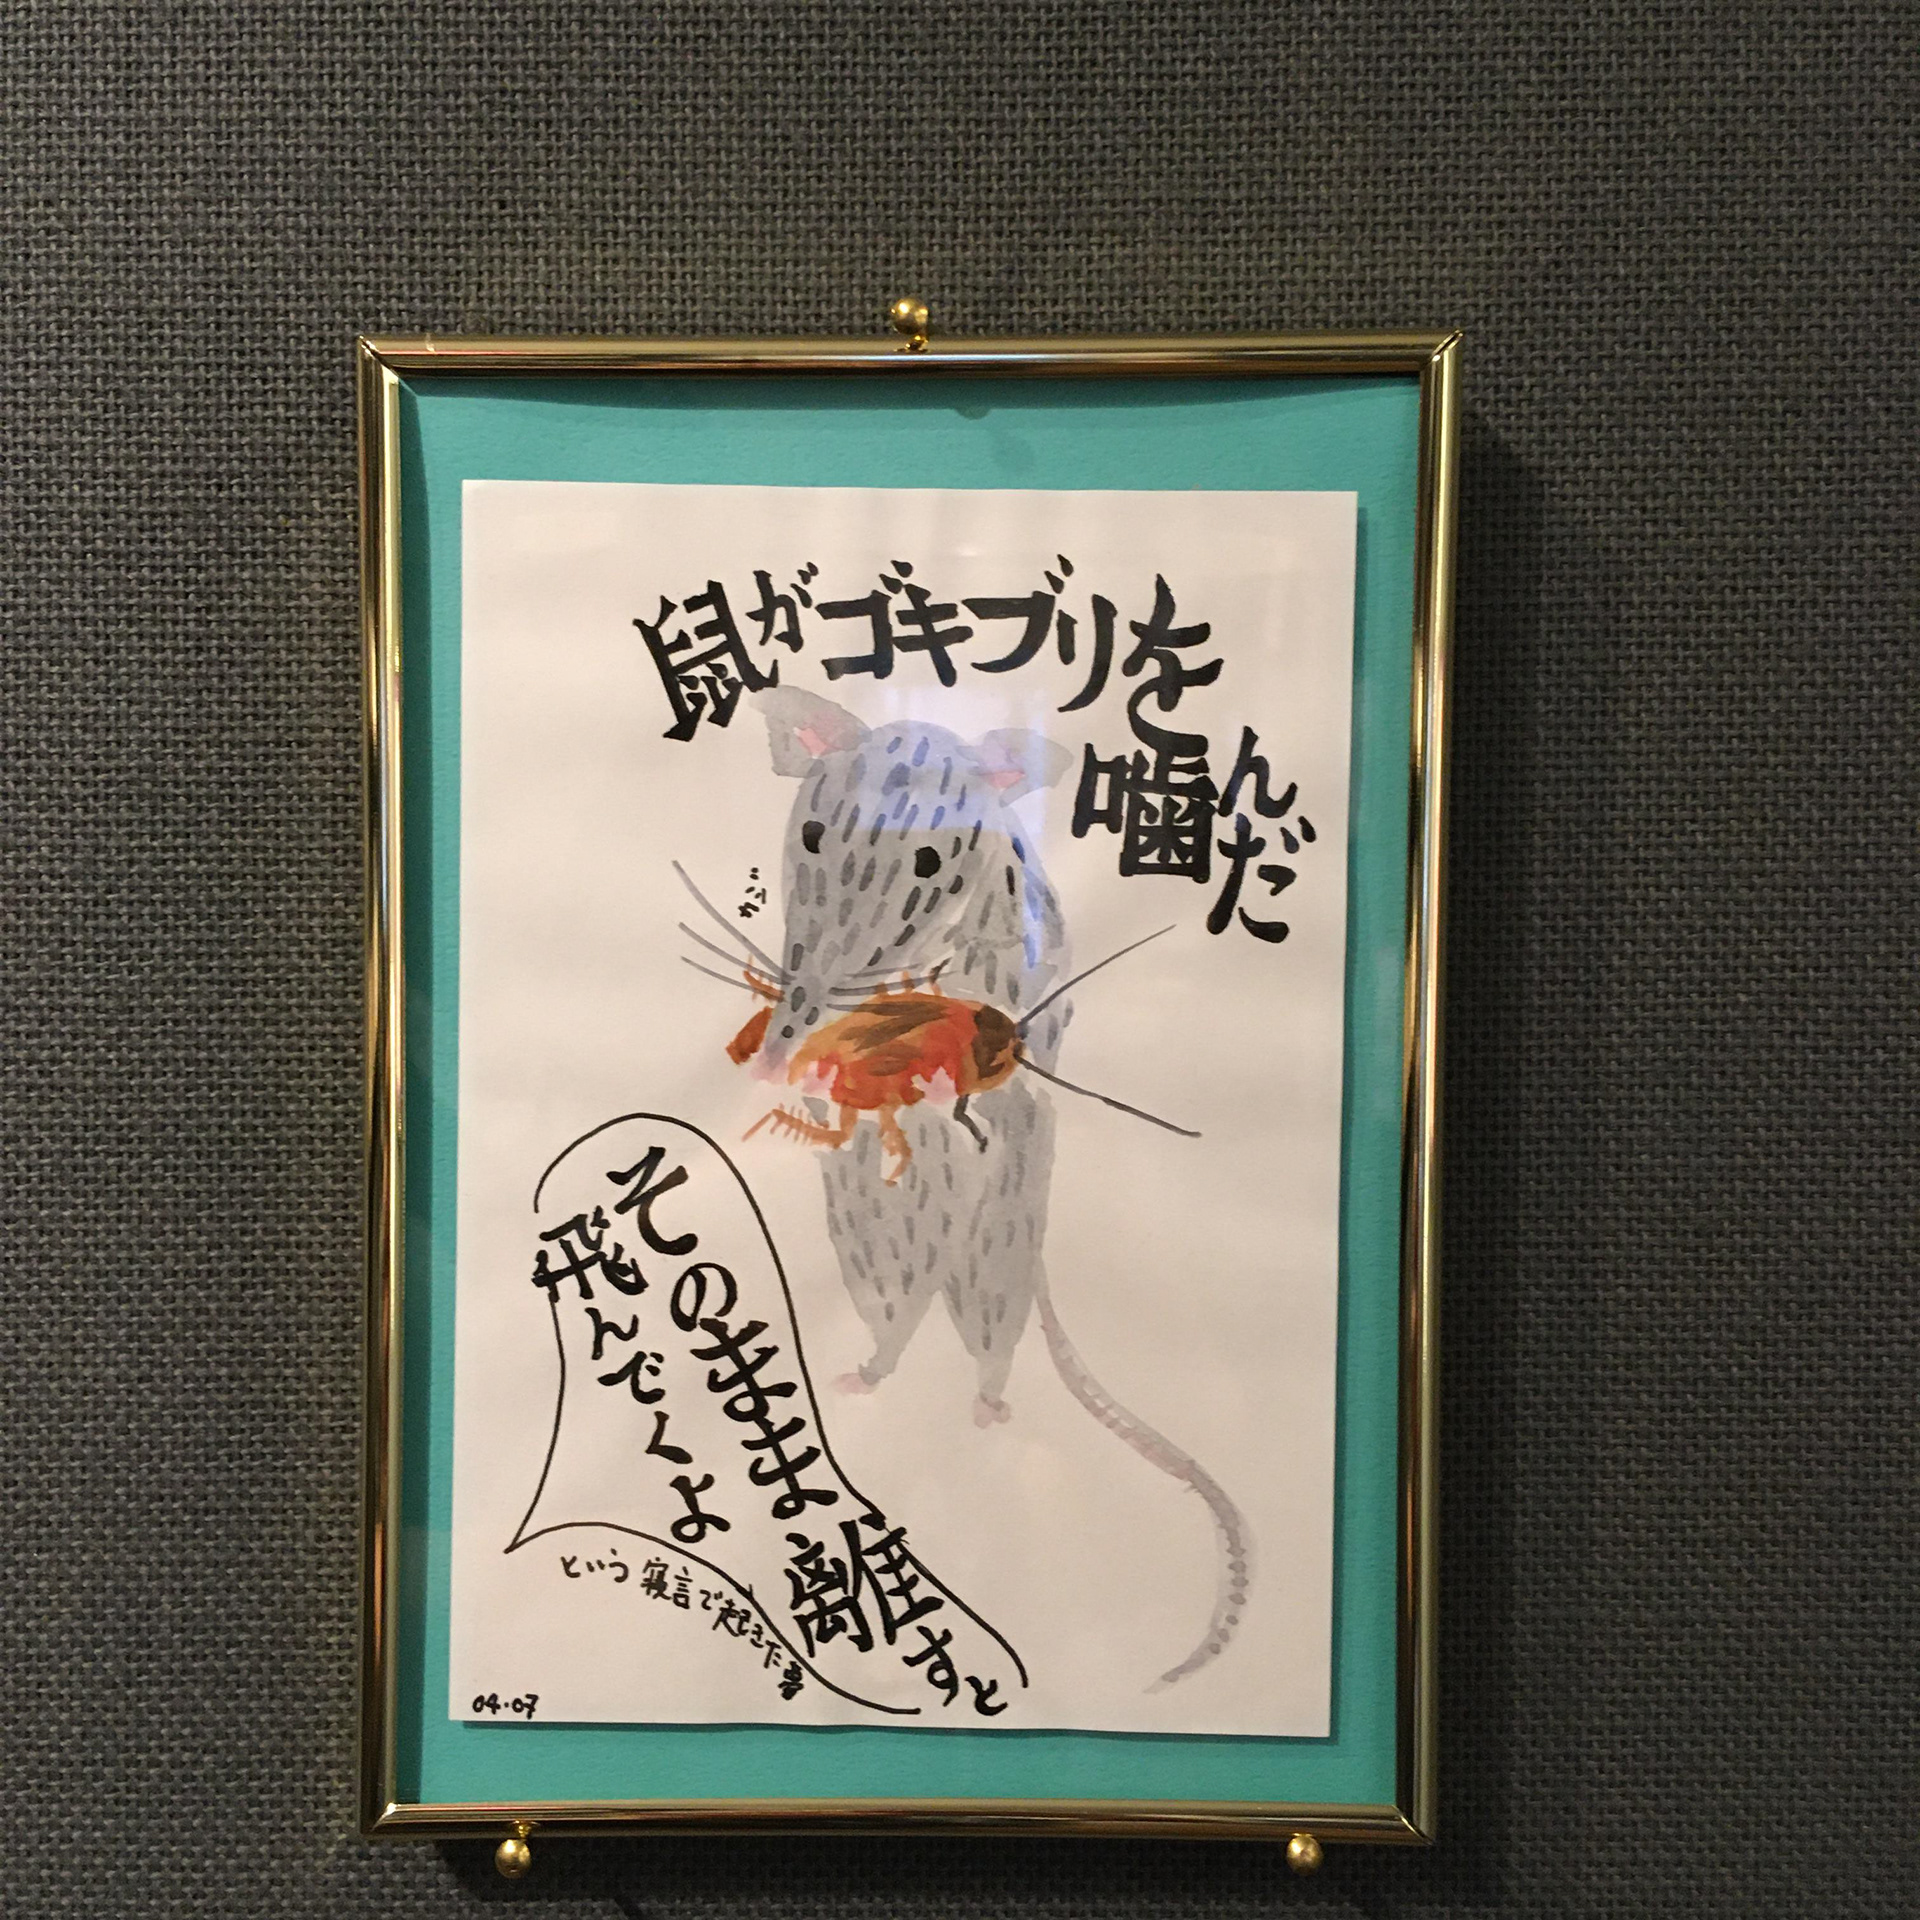 鼠がゴキブリを
噛んだ
そのまま離すと
飛んでくよ
という寝言で起きた夢
04.07